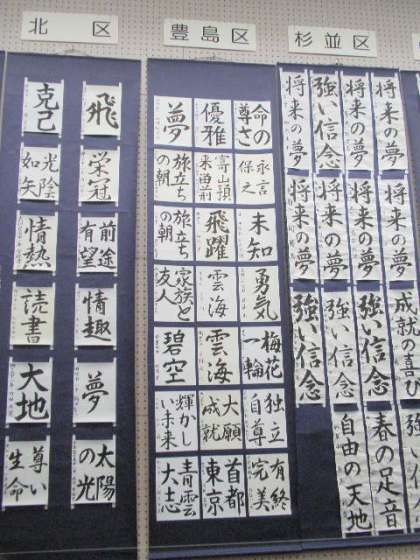 北区
豊島区
杉並区
飛
克己
栄冠
光陰
如矢
前途
有望
情熱
情趣
読書
夢
大地
太陽
の光
尊い
生命
命の
尊さ
優雅
夢
永言
保之
旅立ち
の朝
未知
飛躍
旅立ち
の朝
勇気
雲海
家族と
友人
梅花
一輪
雲海
碧空
独立
自尊
大願
成就
輝かし
い未来
有終
完美
首都
東京
青雲
大志
将来の夢
将来の夢
強い信念
将来の夢
将来の夢
将来の夢
将来の夢
将来の夢
成就の喜び
強い信念
強い信念
強い信念
春の足音
自由の天地